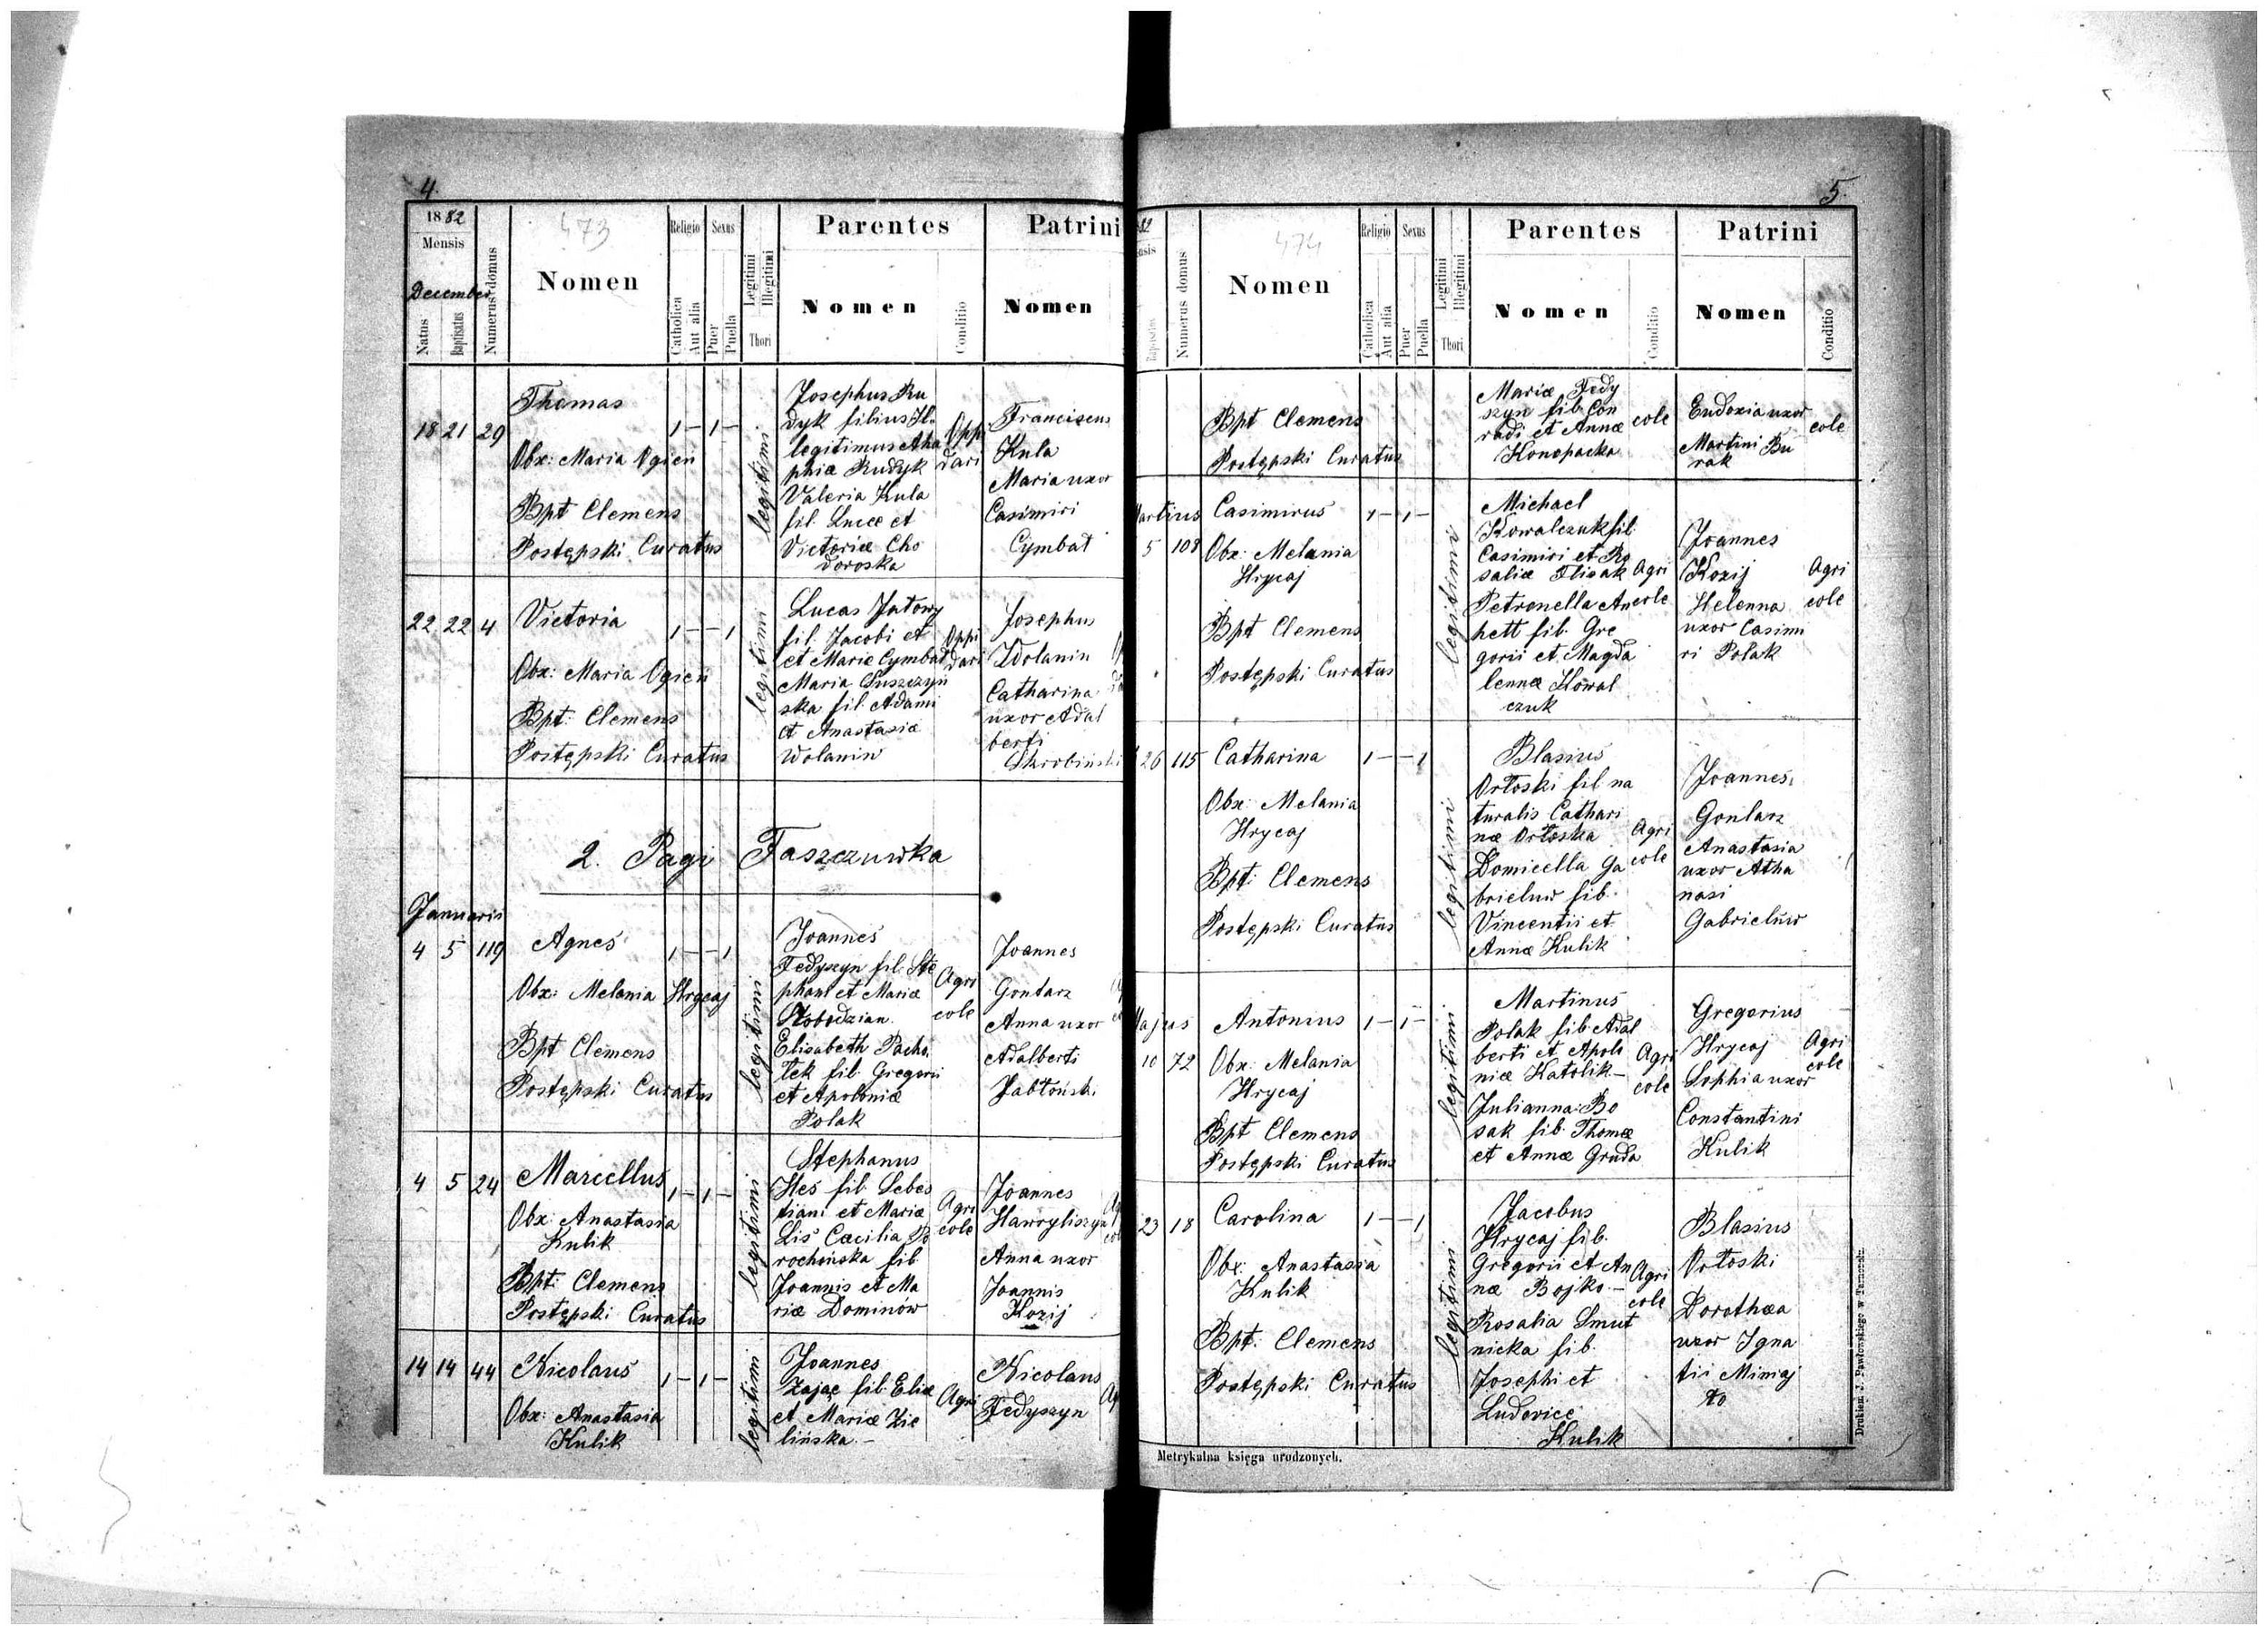 4.
1882
Mensis
December
Natus
Baptisatus
Numerus domus
473
Nomen
Religio
Catholica
Aut alia
Sexus
Puer
Puella
Legitimi
Illegitimi
Thori
Parentes
Nomen
Conditio
Patrini
Nomen
18 21 29
Thomas
Obx: Maria Ogień
Bpt Clemens
Postępski Curatus
1 - 1 -
legitimi
Josephus Ru
dyk filius Il.
legitimus Aha
phiæ Rudyk
Valeria Kula
fil. Lucæ et
Victoriæ Cho
doroska
Oppi
dari
Franciscus
Kula
Maria uxor
Casimiri
Cymbał
22 22 4
Victoria
Obx: Maria Ogień
Bpt: Clemens
Postępski Curatus
1 - - 1
legitimi
Lucas
fil. Jacobi et
et Mariæ Cymbał
Maria Suszczyń
ska fil. Adami
et Anastasiæ
Wolanin
Oppi
dari
Josephus
Wolanin
Catharina
uxor Adal
berti
Skrobiński
2. Pagi Faszczuwka
Januarii
4 5 119
Agnes
Obx: Melania Hrycaj
Bpt Clemens
Postępski Curatus
1 - - 1
legitimi
Joannes
Fedyszyn fil. Ste
phani et Mariæ
Słobodzian.
Elisabeth Pacho
łek fil. Gregorii
et Apoloniæ
Polak
Agri
cole
Joannes
Gontarz
Anna uxor
Adalberti
Jabłońsk.
4 5 24
Marcellus
Obx: Anastasia
Kulik
Bpt: Clemens
Postępski Curatus
1 - 1 -
legitimi
Stephanus
Hes fil. Sebes
tiani et Mariæ
Lis Cæcilia Po
rochońska fil
Joannis et Ma
riæ Dominów
Agri
cole
Joannes
Hawryliszyn
Anna uxor
Joannis
Kozij
14 14 44
Nicolaus
Obx: Anastasia
Kulik
1 - 1 -
legitimi
Joannes
Zając fil. Eliæ
et Mariæ Zie
lińska.-
Agri
Nicolaus
Fedyszyn
5.
Numerus domus
474
Nomen
Religio
Catholica
Aut alia
Sexus
Puer
Puella
Legitimi
Illegitimi
Thori
Parentes
Nomen
Conditio
Patrini
Nomen
Conditio
Bpt Clemens
Postępski Curatus
Mariæ Fedy
szyn fil. Con
radi et Annæ
Konopacka
cole
Eudoxia uxor
Martini Bu
rak
cole
Martius
5 108
Casimirus
Obx: Melania
Hrycaj
Bpt Clemens
Postępski Curatus
1 - 1 -
legitimi
Michael
Kowalczuk fil.
Casimiri et Ro
saliæ Flisak
Petronella An
hett fil. Gre
gorii et Magda
lennæ Kowal
czuk
Agri
cole
Joannes
Kozij
Helenna
uxor Casimi
ri Polak
Agri
cole
26 115
Catharina
Obx: Melania
Hrycaj
Bpt: Clemens
Postępski Curatus
1 - - 1
legitimi
Blasius
Orłoski fil. na
turalis Cathari
næ Orłoska
Domicella Ga
brieluw fil.
Vincentii et
Annæ Kulik
Agri
cole
Joannes
Gontarz
Anastasia
uxor Atha
nasi
Gabrieluw
Majus
10 72
Antonius
Obx: Melania
Hrycaj
Bpt Clemens
Postępski Curatus
1 - 1 -
legitimi
Martinus
Polak fil. Adal
berti et Apolo
niæ Katolik -
Julianna Bo
sak fil. Thomæ
et Annæ Gruda
Agri
cole
Gregorius
Hrycaj
Sophia uxor
Constantini
Kulik
Agri
cole
23 18
Carolina
Obx: Anastasia
Kulik
Bpt: Clemens
Postępski Curatus
1 - - 1
legitimi
Jacobus
Hrycaj fil.
Gregorii et An
næ Bojko -
Rosalia Smut
nicka fil.
Josephi et
Ludovice
Kulik
Agri
cole
Blasius
Orłoski
Dorothæa
uxor Igna
tii Miniaj
ło
Metrykalna księga urodzonych.
Drukiem J. Pawłowskiego w Tarnopolu